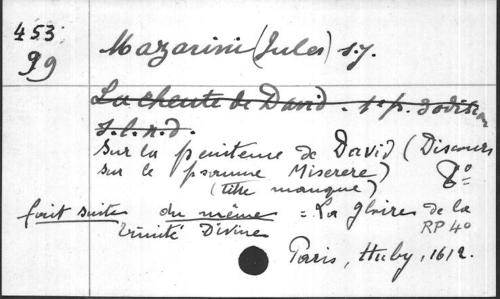 453
99
Mazarini (Jules) s.j.
La cheute de David. 1e p. 3e édition
s.l.n.d.
Sur la penitence de David (Discours
sur le psaume Miserere) 8°
(titre manque)
fait suite du même = La gloire de la
Trinité Divine RP 40
Paris, Huby, 1612.